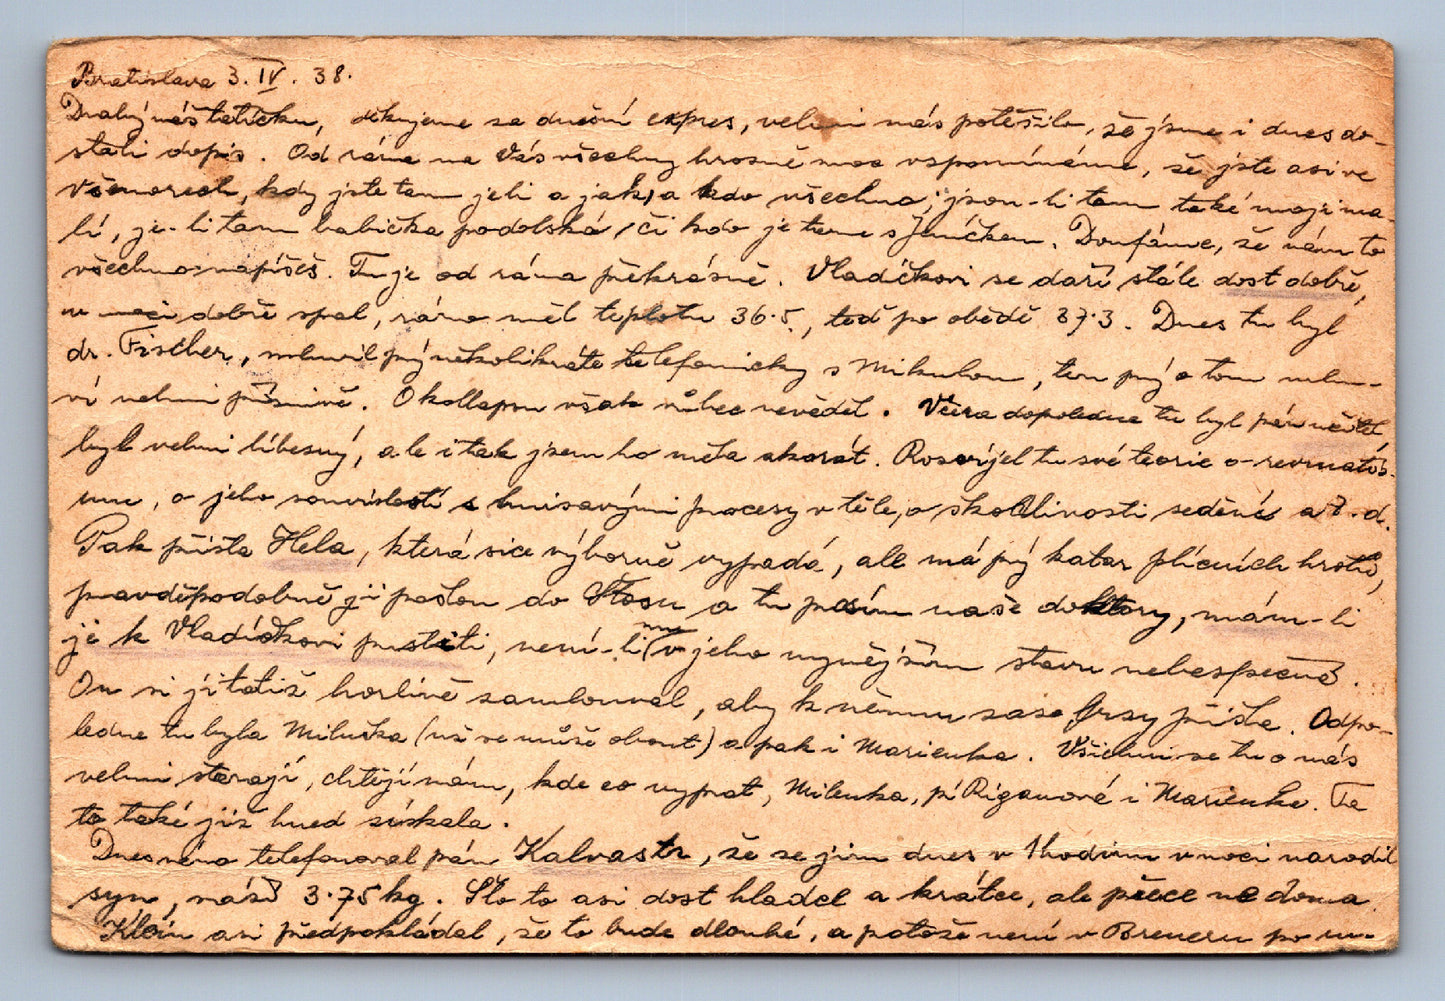 Bratislava 3. IV. 38.
Drahý náš tatíčku, děkujeme za dnešní expres, velmi nás potěšilo, že jsme i dnes do-
stali dopis. Od rána na Vás všechny hrozně moc vzpomínáme, že jste asi ve
Všenorech, kdy jste tam jeli a jak, a kdo všechno; jsou-li tam také moji ma-
lí, je-li tam babička podolská, či kdo je tam s Jeníčkem. Doufáme, že nám to
všechno napíšeš. Tu je od rána překrásně. Vladíčkovi se daří stále dost dobře,
v noci dobře spal, ráno měl teplotu 36.5, teď po obědě 37.3. Dnes tu byl
dr. Fischer, mluvil prý několikráte telefonicky s Mikulou, ten prý o tom mlu-
ví velmi příznivě. O kollapsu však vůbec nevěděl. Včera dopoledne tu byl pán učitel
byl velmi líbezný, ale i tak jsem ho měla akorát. Rozvíjel tu své teorie o revmatis-
mu, o jeho souvislosti s hnisavými procesy v těle, o škodlivosti sedění a t. d.
Pak přišla Hela, která sice výborně vypadá, ale má prý katar plicních hrotů,
pravděpodobně ji pošlou do Tosu a tu prosím naše doktory, mám-li
ji k Vladíčkovi pustiti, není-li mu v jeho nynějším stavu nebezpečná.
On si ji totiž horlivě zamlouval, aby k němu zase brzy přišla. Odpo-
ledne tu byla Miluška (už se může obout) a pak i Marienka. Všichni se tu o nás
velmi starají, chtějí nám, kde co vyprat, Milenka, pí Riganová i Marienka. Ta
to také již hned získala.
Dnes ráno telefonoval pán Kalvastr, že se jim dnes v 1 hodinu v noci narodil
syn, váží 3.75 kg. Šlo to asi dost hladce a krátce, ale přece ne doma
Klein asi předpokládal, že to bude dlouhé, a potože není v Breueru po u-